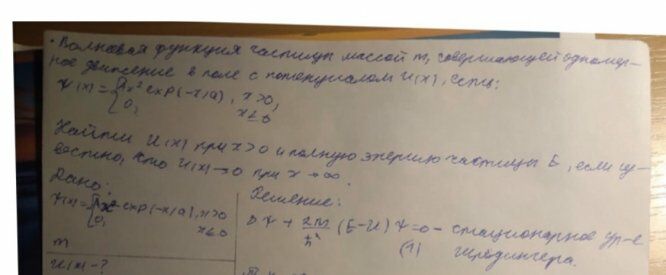 · Волновая функция частицы массой m, совершающей одномер-
ное движение в поле с потенциалом U(x), есть:
Ψ(x) = { Ax² exp(-x/a), x > 0,
0, x ≤ 0
Найти U(x) при x > 0 и полную энергию частицы E, если из-
вестно, что U(x) → 0 при x → ∞.
Дано:
Ψ(x) = { Ax² exp(-x/a), x > 0
0, x ≤ 0
m
U(x) - ?
Решение:
Δ Ψ + 2m/ħ² (E-U) Ψ = 0 - стационарное ур-е
(1) Шредингера.